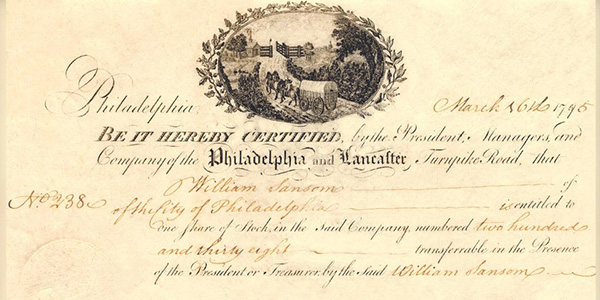 Philadelphia, March 16th 1795
BE IT HEREBY CERTIFIED, by the President, Managers, and
Company of the Philadelphia and Lancaster Turnpike Road, that
William Sansom of
No. 238 of the City of Philadelphia is entitled to
one share of Stock, in the Said Company, numbered two hundred
and thirty eight transferrable in the Presence
of the President or Treasurer, by the Said William Sansom